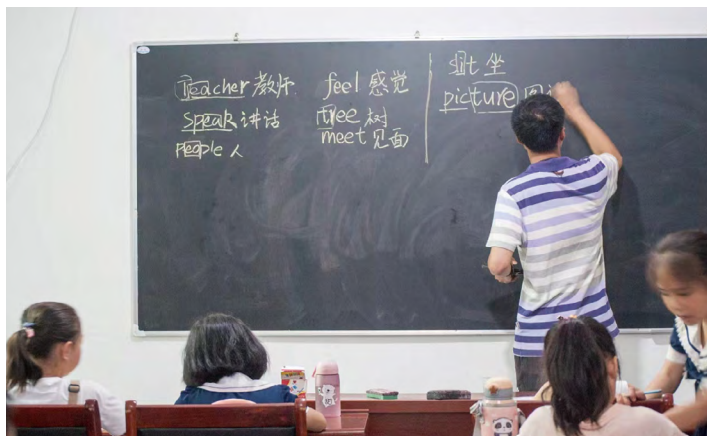 Teacher 教师
speak 讲话
people 人
feel 感觉
tree 树
meet 见面
sit 坐
picture 图